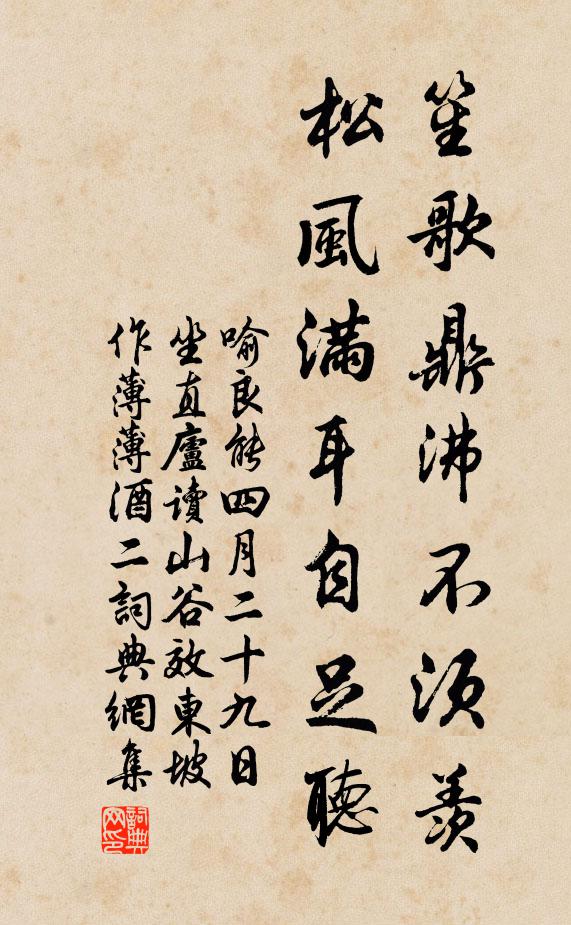 笙歌鼎沸不須羨
松風滿耳自足聽
喻良能四月二十九日
坐直廬讀山谷效東坡
作薄薄酒二詞典網集
詞典網印